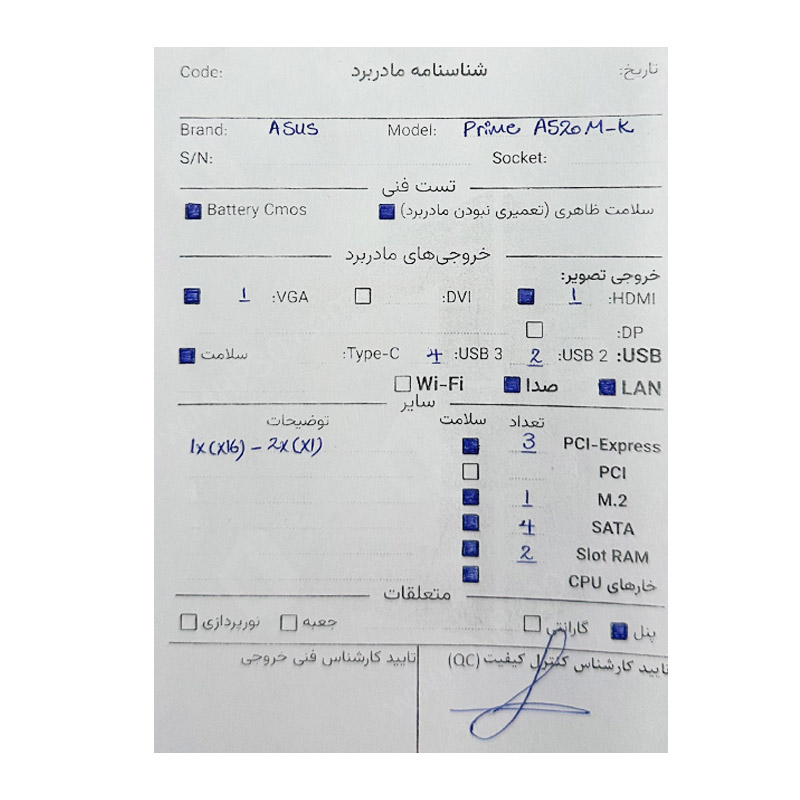 تاریخ: شناسنامه مادربرد Code:
Brand: ASUS Model: Prime A520M-K
S/N: Socket:
تست فنی
سلامت ظاهری (تعمیری نبودن مادربرد) Battery Cmos
خروجی‌های مادربرد
خروجی تصویر:
HDMI: 1 DVI: VGA: 1
DP:
USB: USB 2: 2 USB 3: 4 Type-C: سلامت
LAN صدا Wi-Fi
سایر
تعداد سلامت توضیحات
PCI-Express 3 1x(x16) - 2x(x1)
PCI
M.2 1
SATA 4
Slot RAM 2
خارهای CPU
متعلقات
پنل گارانتی جعبه نورپردازی
تایید کارشناس کنترل کیفیت (QC) تایید کارشناس فنی خروجی